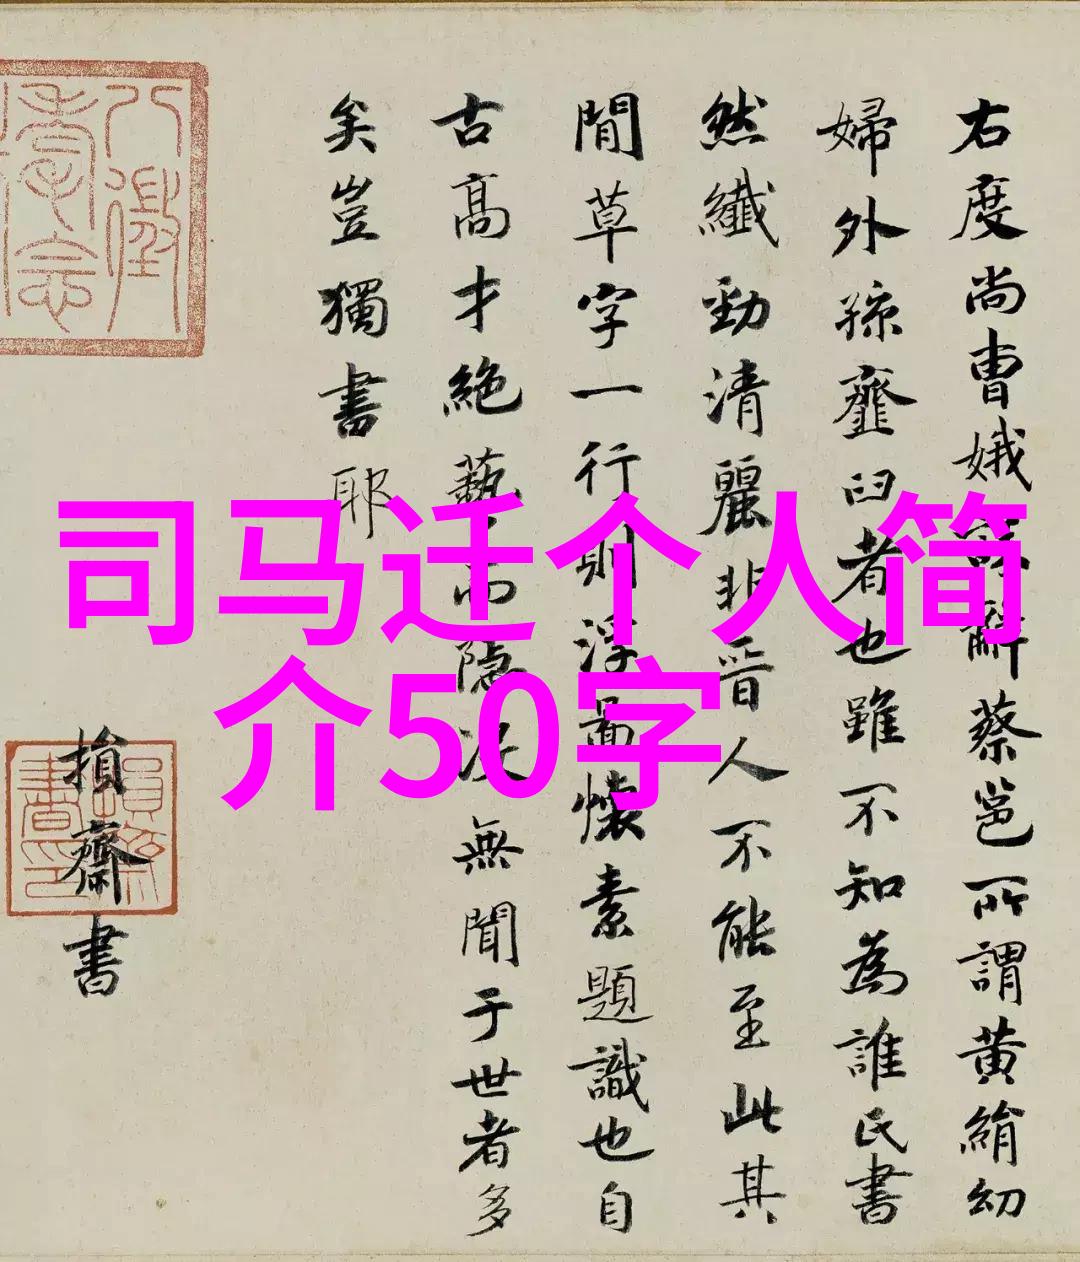 司马迁个人简
介50字
右度尚曹娥誄辭蔡邕所謂黄絹幼
婦外孫虀臼者也雖不知為誰氏書
然纖勁清麗非晉人不能至此其
閒草字一行則浮啚懷素題識也自
古高才絕藝而隱没無聞于世者多
矣豈獨書耶
損齋書